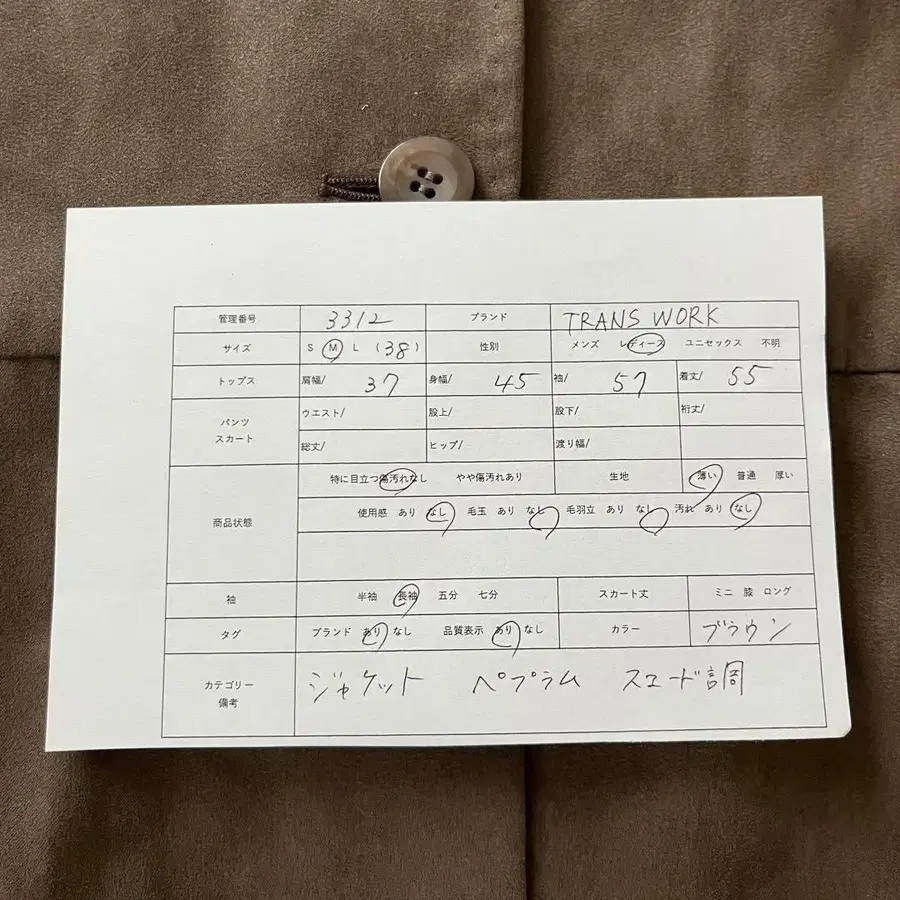 管理番号 3312 ブランド TRANS WORK
サイズ S M L (38) 性別 メンズ レディース ユニセックス 不明
トップス 肩幅/ 37 身幅/ 45 袖/ 57 着丈/ 55
パンツ スカート ウエスト/ 股上/ 股下/ 裄丈/
総丈/ ヒップ/ 渡り幅/
商品状態 特に目立つ傷汚れなし やや傷汚れあり 生地 薄い 普通 厚い
使用感 あり なし 毛玉 あり なし 毛羽立 あり なし 汚れ あり なし
袖 半袖 長袖 五分 七分 スカート丈 ミニ 膝 ロング
タグ ブランド あり なし 品質表示 あり なし カラー ブラウン
カテゴリー 備考 ジャケット ペプラム スエード調